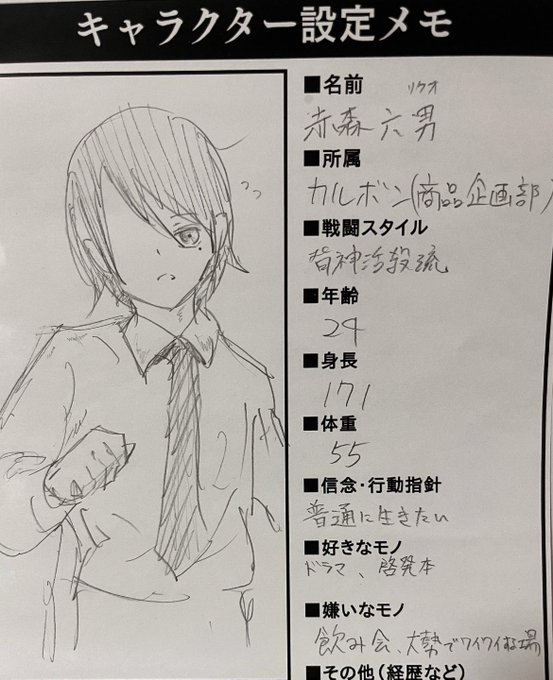 キャラクター設定メモ
■名前
リクオ
赤森 六男
■所属
カルボン(商品企画部)
■戦闘スタイル
背神活殺流
■年齢
24
■身長
171
■体重
55
■信念・行動指針
普通に生きたい
■好きなモノ
ドラマ、啓発本
■嫌いなモノ
飲み会、大勢でワイワイする場
■その他(経歴など)